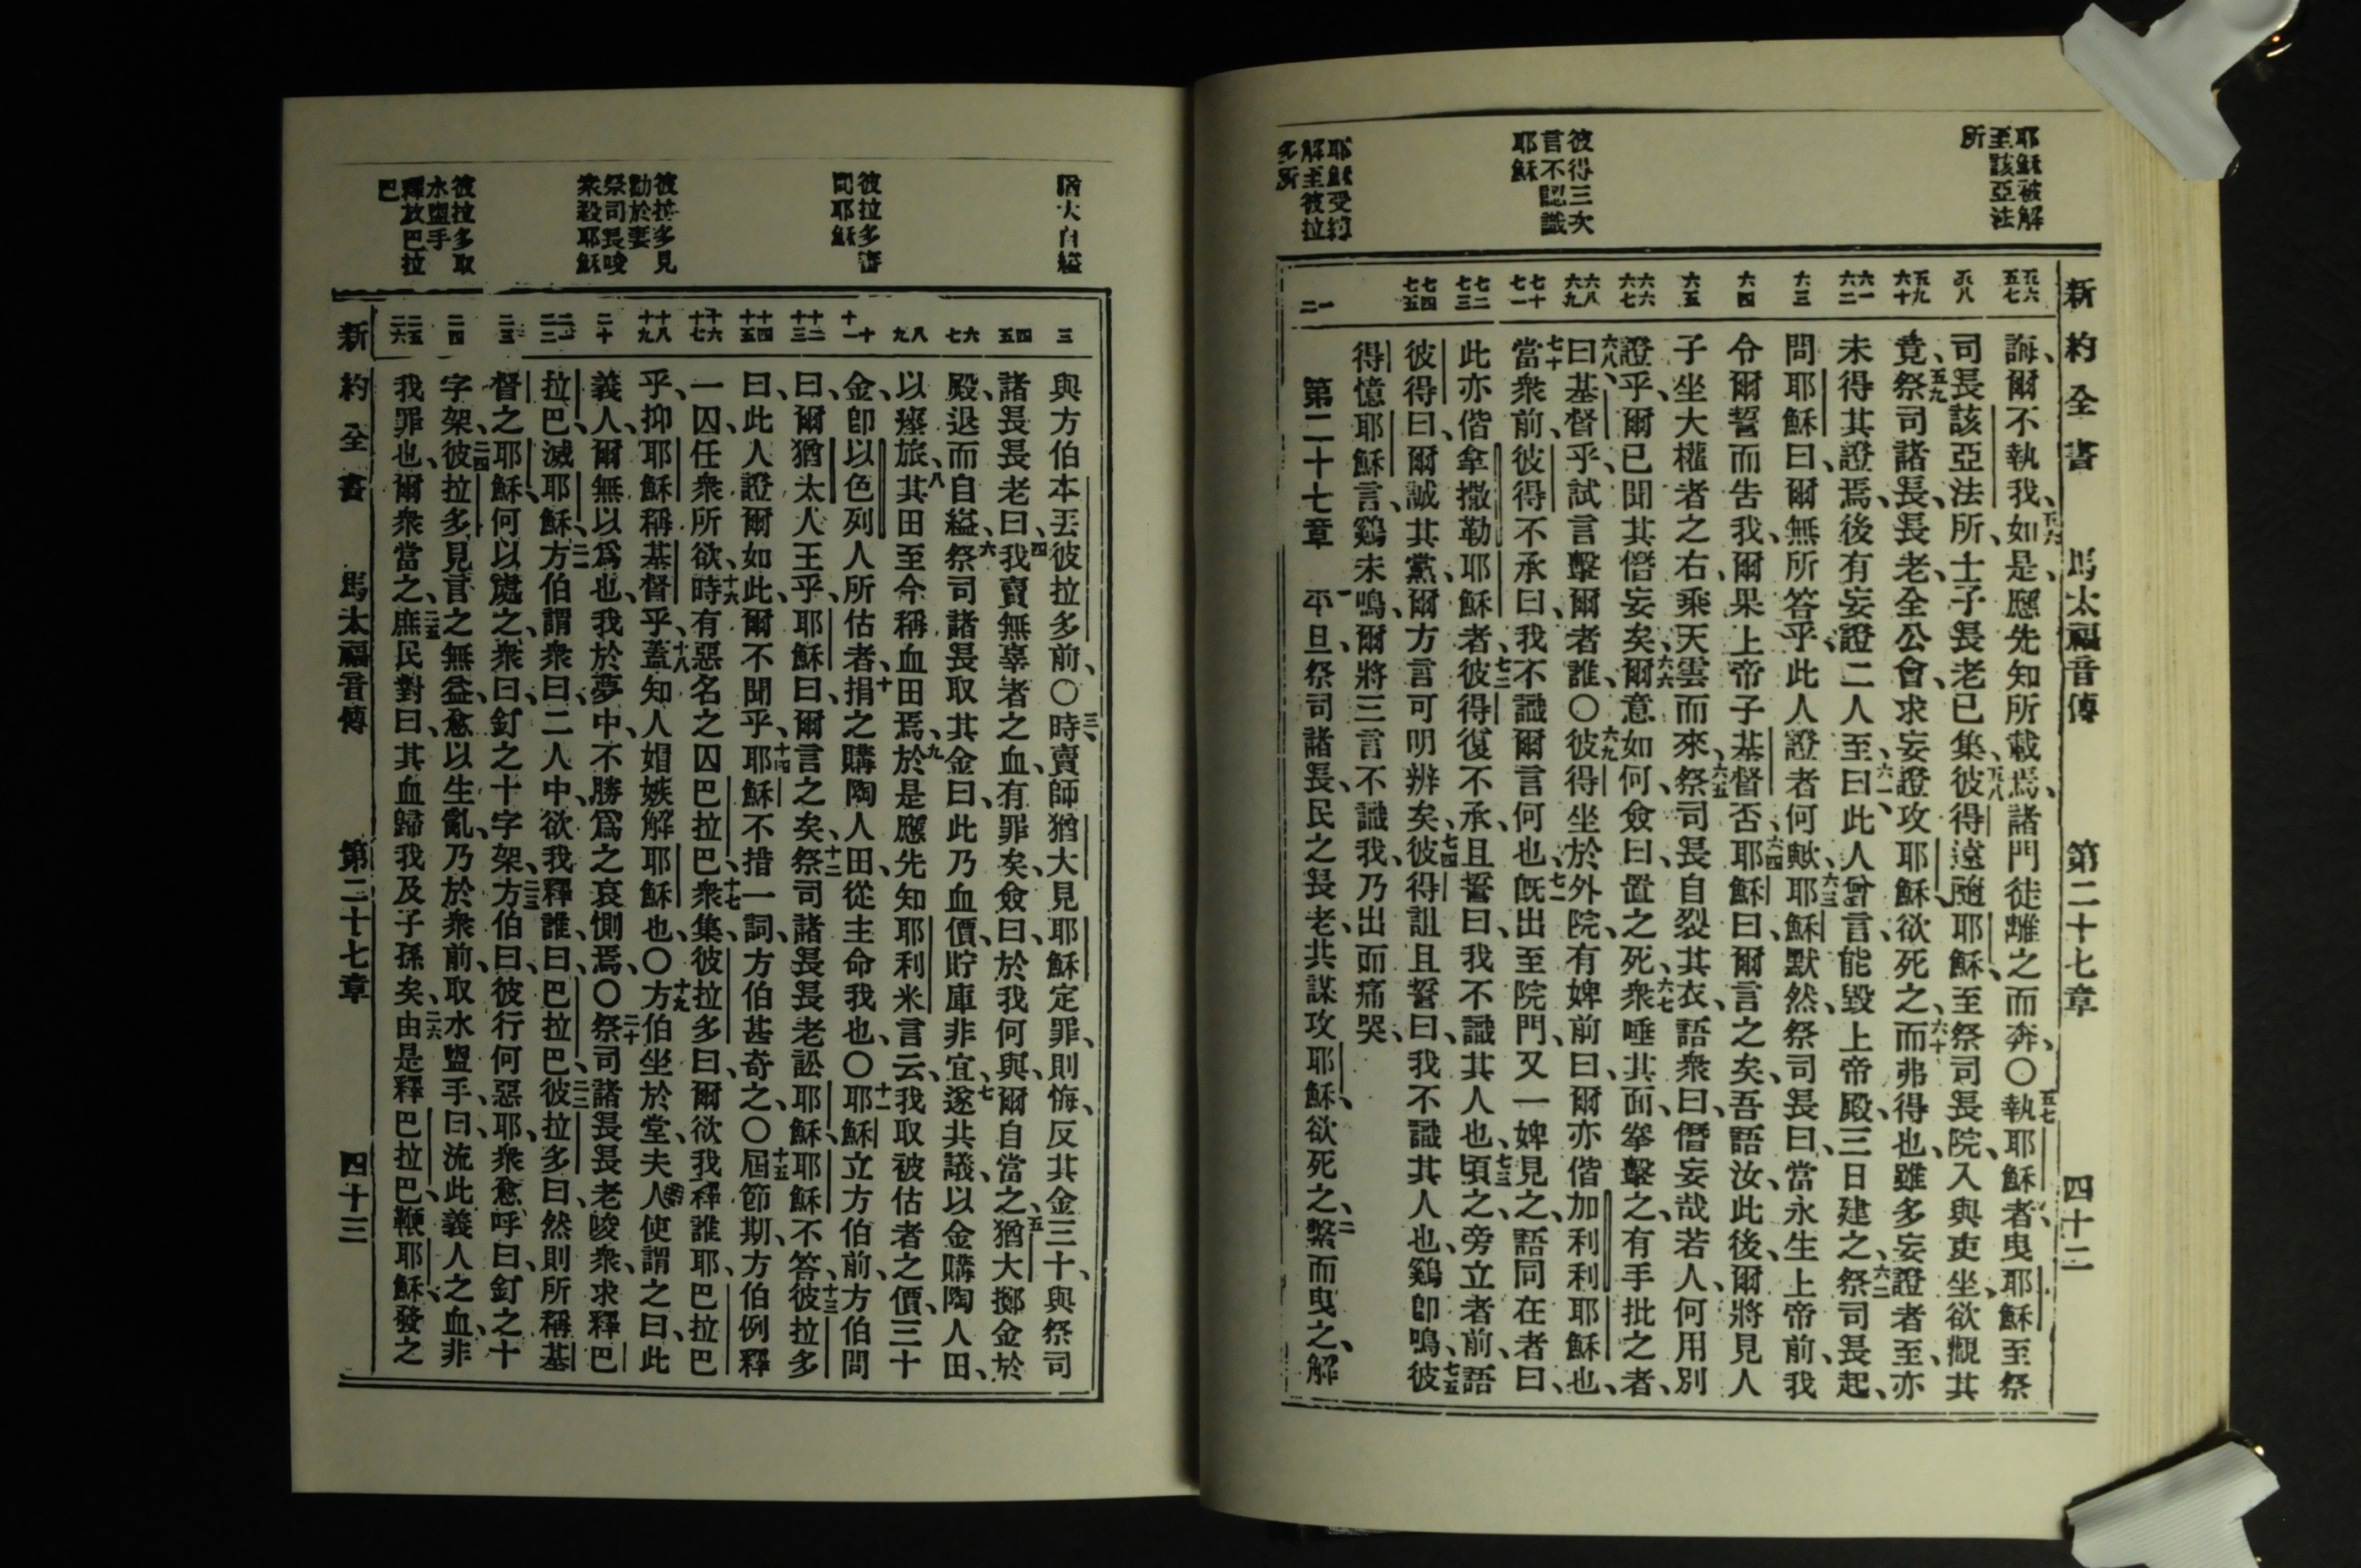 耶穌被解
至該亞法
所
彼得三次
言不認識
耶穌
耶穌受縛
解至彼拉
多所
新約全書 馬太福音傳 第二十七章 四十二
五六 五七
五八
五九 六十
六一 六二
六三
六四
六五
六六 六七
六八 六九
七十 七一
七二 七三
七四 七五
一 二
誨、爾不執我、五六如是、應先知所載焉、諸門徒離之而奔、〇五七執耶穌者、曳耶穌至祭
司長該亞法所、士子長老已集、五八彼得遠隨耶穌、至祭司長院、入與吏坐、欲觀其
竟、五九祭司諸長、長老、全公會、求妄證攻耶穌、欲死之、六十而弗得也、雖多妄證者至、亦
未得其證焉、後有妄證二人至、六一曰、此人曾言、能毀上帝殿、三日建之、六二祭司長起、
問耶穌曰、爾無所答乎、此人證者何歟、六三耶穌默然、祭司長曰、當永生上帝前、我
令爾誓而告我、爾果上帝子基督否、六四耶穌曰、爾言之矣、吾語汝、此後、爾將見人
子坐大權者之右、乘天雲而來、六五祭司長自裂其衣、語衆曰、僭妄哉若人、何用別
證乎、爾已聞其僭妄矣、六六爾意如何、僉曰、置之死、六七衆唾其面、拳擊之、有手批之者、
六八曰、基督乎、試言擊爾者誰、〇六九彼得坐於外院、有婢前曰、爾亦偕加利利耶穌也、
七十當衆前、彼得不承曰、我不識爾言何也、七一旣出至院門、又一婢見之、語同在者曰、
此亦偕拿撒勒耶穌者、七二彼得復不承、且誓曰、我不識其人也、七三頃之、旁立者前、語
彼得曰、爾誠其黨、爾方言可明辨矣、七四彼得詛且誓曰、我不識其人也、鷄卽鳴、七五彼
得憶耶穌言、鷄未鳴、爾將三言不識我、乃出而痛哭、
第二十七章 一平旦、祭司諸長、民之長老、共謀攻耶穌、欲死之、二縶而曳之、解
猶大自縊
彼拉多審
問耶穌
彼拉多見
勸於妻
祭司長唆
衆殺耶穌
彼拉多取
水盥手
釋放巴拉
巴
三
四 五
六 七
八 九
十 十一
十二 十三
十四 十五
十六 十七
十八 十九
二十
二一 二二
二三
二四
二五 二六
與方伯本丟彼拉多前、〇三時賣師猶大見耶穌定罪、則悔、反其金三十、與祭司
諸長長老曰、四我賣無辜者之血、有罪矣、僉曰、於我何與、爾自當之、五猶大擲金於
殿、退而自縊、六祭司諸長取其金曰、此乃血價、貯庫非宜、七遂共議、以金購陶人田、
以瘞旅、八其田至今稱血田焉、九於是應先知耶利米言云、我取被估者之價、三十
金、卽以色列人所估者、十捐之購陶人田、從主命我也、〇十一耶穌立方伯前、方伯問
曰、爾猶太人王乎、耶穌曰、爾言之矣、十二祭司諸長長老訟耶穌、耶穌不答、十三彼拉多
曰、此人證爾如此、爾不聞乎、十四耶穌不措一詞、方伯甚奇之、〇十五屆節期、方伯例釋
一囚、任衆所欲、十六時有惡名之囚巴拉巴、十七衆集、彼拉多曰、爾欲我釋誰耶、巴拉巴
乎、抑耶穌稱基督乎、十八蓋知人媢嫉解耶穌也、〇十九方伯坐於堂、夫人使謂之曰、此
義人、爾無以爲也、我於夢中、不勝爲之哀惻焉、〇二十祭司諸長長老唆衆、求釋巴
拉巴、滅耶穌、二一方伯謂衆曰、二人中、欲我釋誰、曰、巴拉巴、二二彼拉多曰、然則所稱基
督之耶穌、何以處之、衆曰、釘之十字架、二三方伯曰、彼行何惡耶、衆愈呼曰、釘之十
字架、二四彼拉多見言之無益、愈以生亂、乃於衆前、取水盥手、曰、流此義人之血、非
我罪也、爾衆當之、二五庶民對曰、其血歸我及子孫矣、二六由是釋巴拉巴、鞭耶穌、發之
新約全書 馬太福音傳 第二十七章 四十三